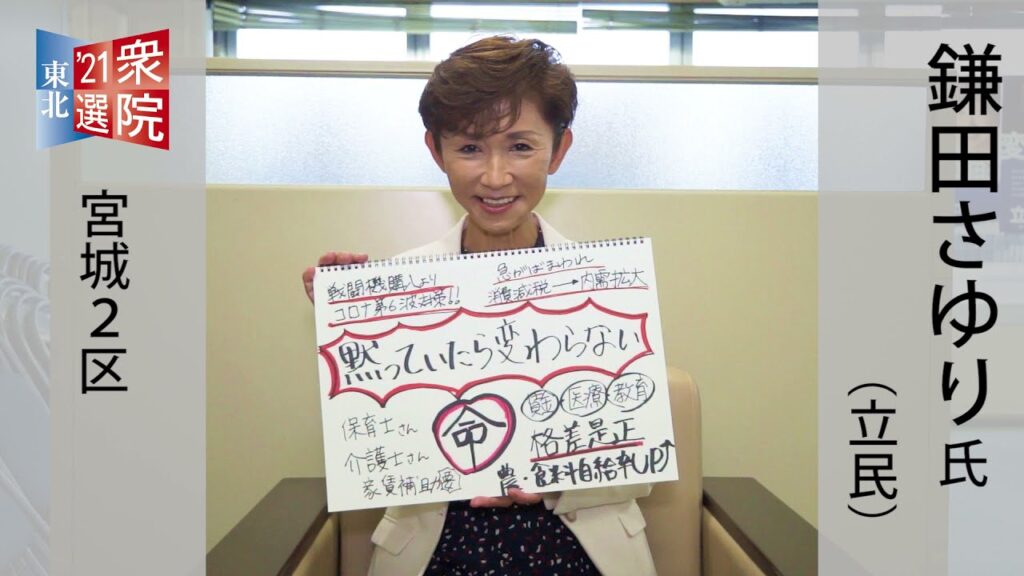 衆院
'21選
東北
宮城2区
鎌田さゆり氏
(立民)
戦闘機購入より
コロナ第6波対策!!
急がばまわれ
消費減税→内需拡大
黙っていたら変わらない
保育士さん
介護士さん
家賃補助
命
賃金 医療 教育
格差是正
農・食料自給率UP↑